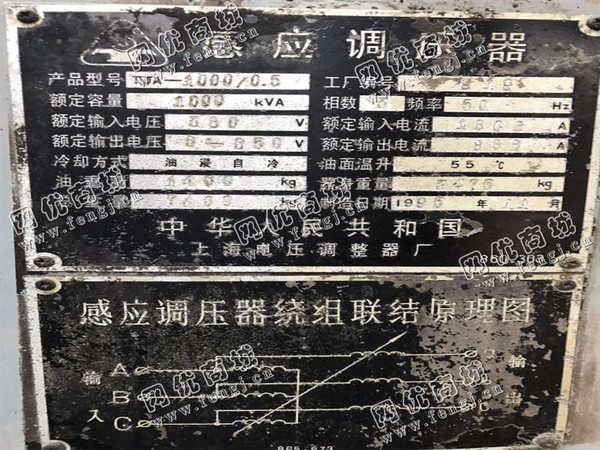 感应调压器
产品型号 TJA-1000/0.5 工厂编号
额定容量 1000 kVA 相数 频率 50 Hz
额定输入电压 380 V 额定输入电流 A
额定输出电压 0-650 V 额定输出电流 888 A
冷却方式 油浸自冷 油面温升 55℃
油重 1400 kg 器身重量 2470 kg
kg 制造日期 1995年11月
中华人民共和国
上海电压调整器厂
感应调压器绕组联结原理图
输入
A
B
C
输出
a
c
865.673
网优商城
www.fengj.cn